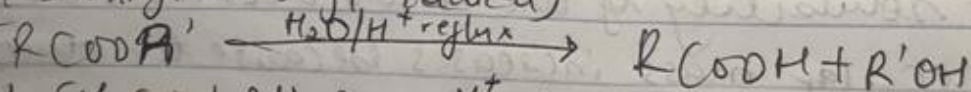 RCOOR' H₂O/H⁺ reflux → RCOOH + R'OH